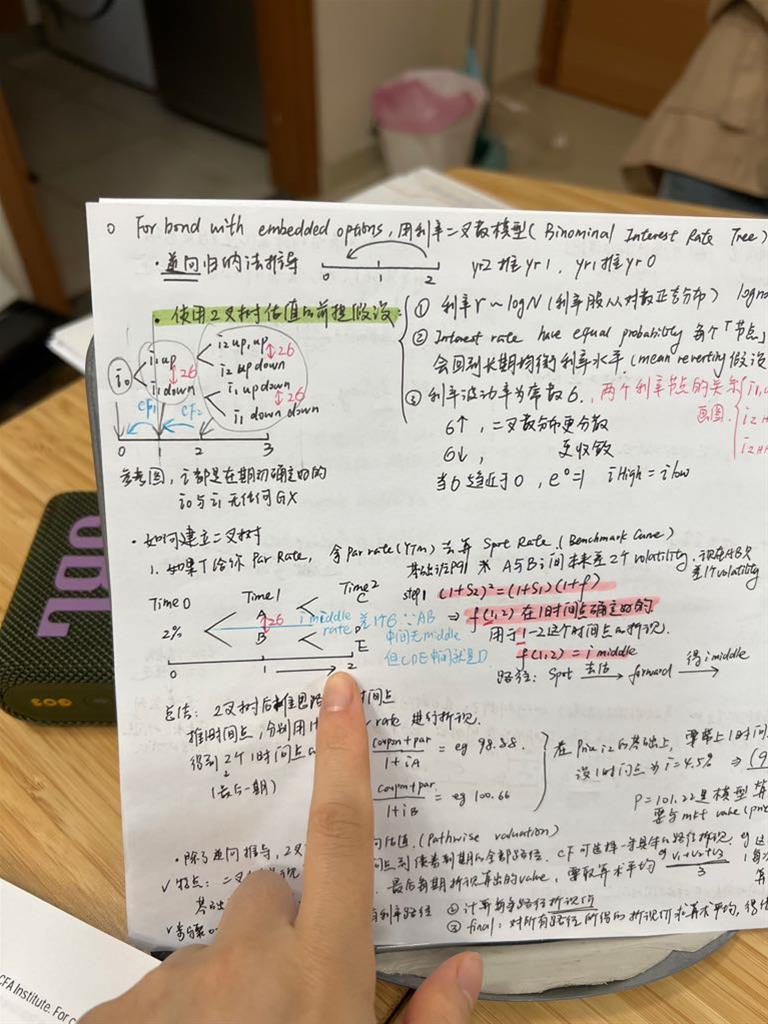 For bond with embedded options, 用利率二叉数模型( Binominal Interest Rate Tree)
· 逆向归纳法推导 0 1 2 yr2 推 yr1, yr1 推 yr0
· 使用2叉树估值的前提假设:
① 利率 r ~ logN (利率服从对数正态分布)
② Interest rate have equal probability 每个「节点」
会回到长期均衡利率水平. (mean reverting 假设
③ 利率波动率为常数 6. 两个利率节点的关系
画图.
6↑, 二叉数分布更分散
6↓, 更收敛
当6趋近于0, e⁰=1 i High = i low
i₀
i₁up
i₁down
i₂ up, up
i₂ up down
i, up down
i₁ down down
26
26
26
CF₁
CF₂
0 1 2 3
参考图, i 都是在期初确定的的
i₀ 与 i₁ 无任何GX
· 如何建立二叉树
1. 如果T给你 Par Rate, 拿 Par rate (YTM) 去算 Spot Rate. (Benchmark Curve)
A与B间未来差2个volatility.
差1个volatility
Time 0 Time 1 Time 2
2%
A
B
C
D
E
26
i middle
rate
差1个6 ∵AB
中间无middle
但CDE中间就是D
0 1 2
step1 (1+S₂)² = (1+S₁)(1+f)
⇒ f(1,2) 在1时间点确定的的
用于1-2这个时间点的折现.
f(1,2) = i middle
路径: Spot 去估 → forward 得 i middle →
总法: 2叉树后推思路 时间点
推1时间点, 分别用 rate 进行折现.
得到2个1时间点
(最后一期)
coupon + par / 1 + iA = eg 98.88.
coupon + par. / 1 + iB = eg 100.66
的基础上, 要带上1时间
设1时间点为 i = 4.5% ⇒
P=101.22是模型算
要与 mkt value
· 除了逆向推导, 2叉 估值. (Pathwise valuation)
间点到债券到期的全部路径. CF可选择一条具体的路径折现.
最后每期折现算出的value, 要取算术平均 V₁+V₂+V₃ / 3
√ 特点: 二叉
基础
√ 步骤
利率路径 ② 计算每条路径折现价
③ final: 对所有路径所得的折现价求算术平均,
JBL
GO3
CFA Institute. For